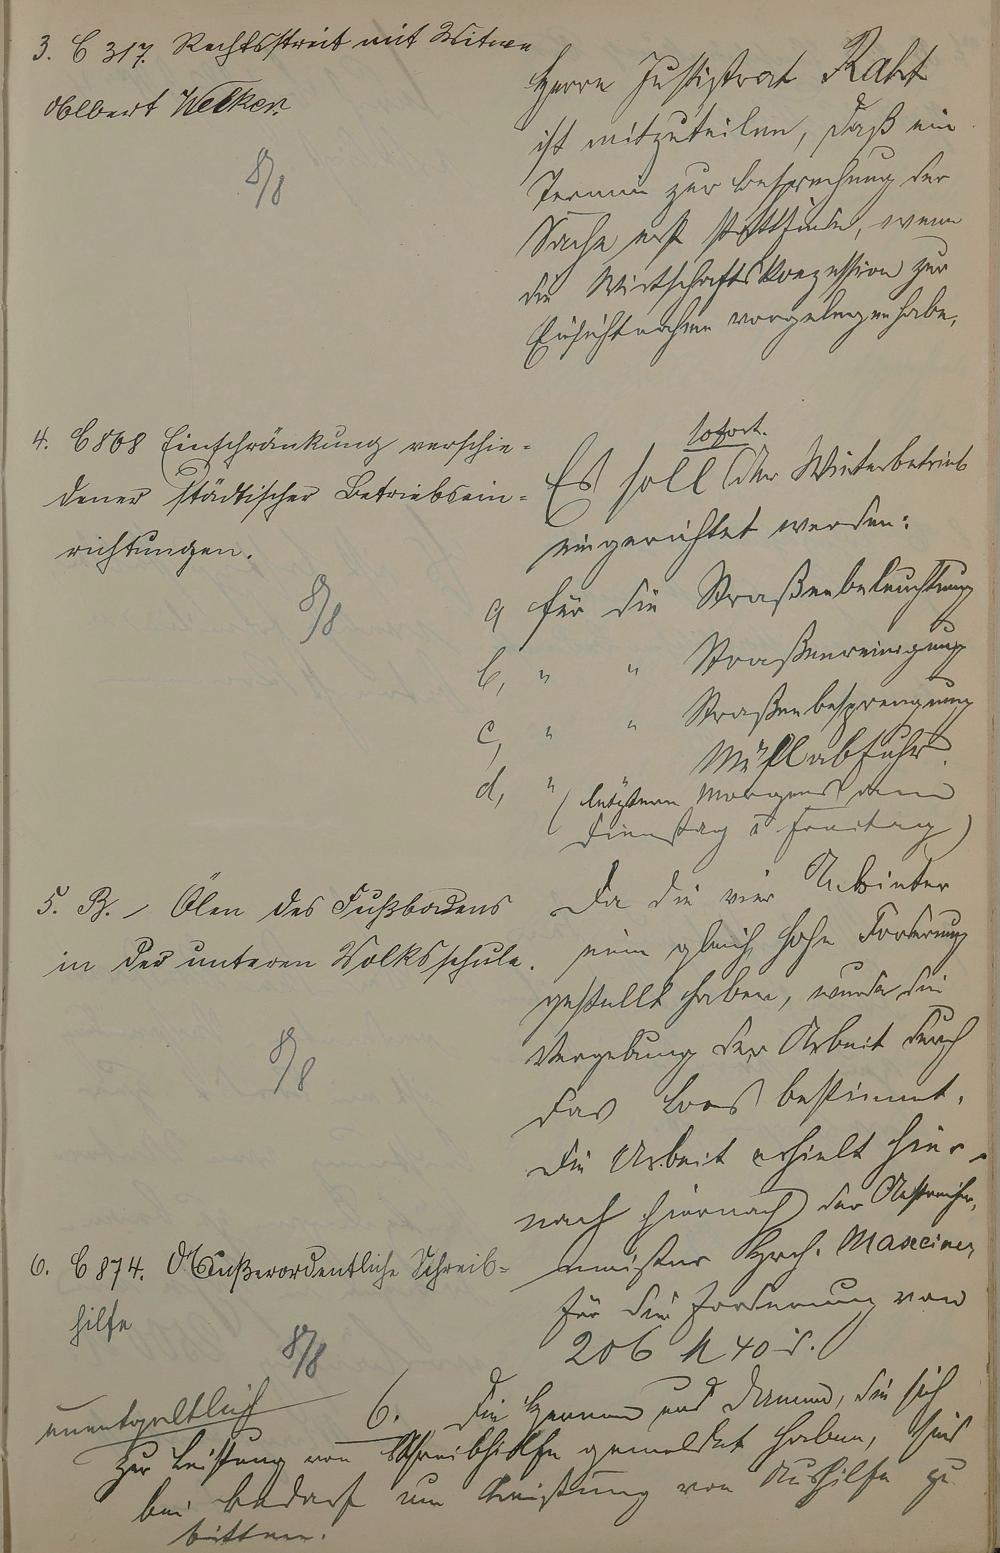 3. C 317. Rechtsstreit mit Witwe
Albert Welker.
8/8
Herrn Justizrat Raht
ist mitzuteilen, daß ein
Termin zur Besprechung der
Sache erst stattfinde, wenn
die Wirtschaftskonzession zur
Einsichtnahme vorgelegen habe.
4. C 868 Einschränkung verschie-
dener städtischer Betriebsein-
richtungen.
8/8
sofort.
Es soll der Winterbetrieb
eingerichtet werden:
a, für die Straßenbeleuchtung
b, " " Straßenreinigung
c, " " Straßenbesprengung
d, " Müllabfuhr.
(letztere Morgens am
Dienstag u Freitag)
5. B. - Ölen des Fußbodens
in der unteren Volksschule.
8/8
Da die vier Anbieter
eine gleich hohe Forderung
gestellt haben, wurde die
Vergebung der Arbeit durch
das Loos bestimmt.
Die Arbeit erhielt hier-
nach hiernach der
meister Hrch.
für die Forderung von
206 M 40 d.
6. C 874. Außerordentliche Schreib-
hilfe
8/8
unentgeltlich
6. Die Herren und Damen, die sich
zur Leistung von Schreibhilfe gemeldet haben, sind
bei Bedarf um Leistung von Aushilfe zu
bitten.